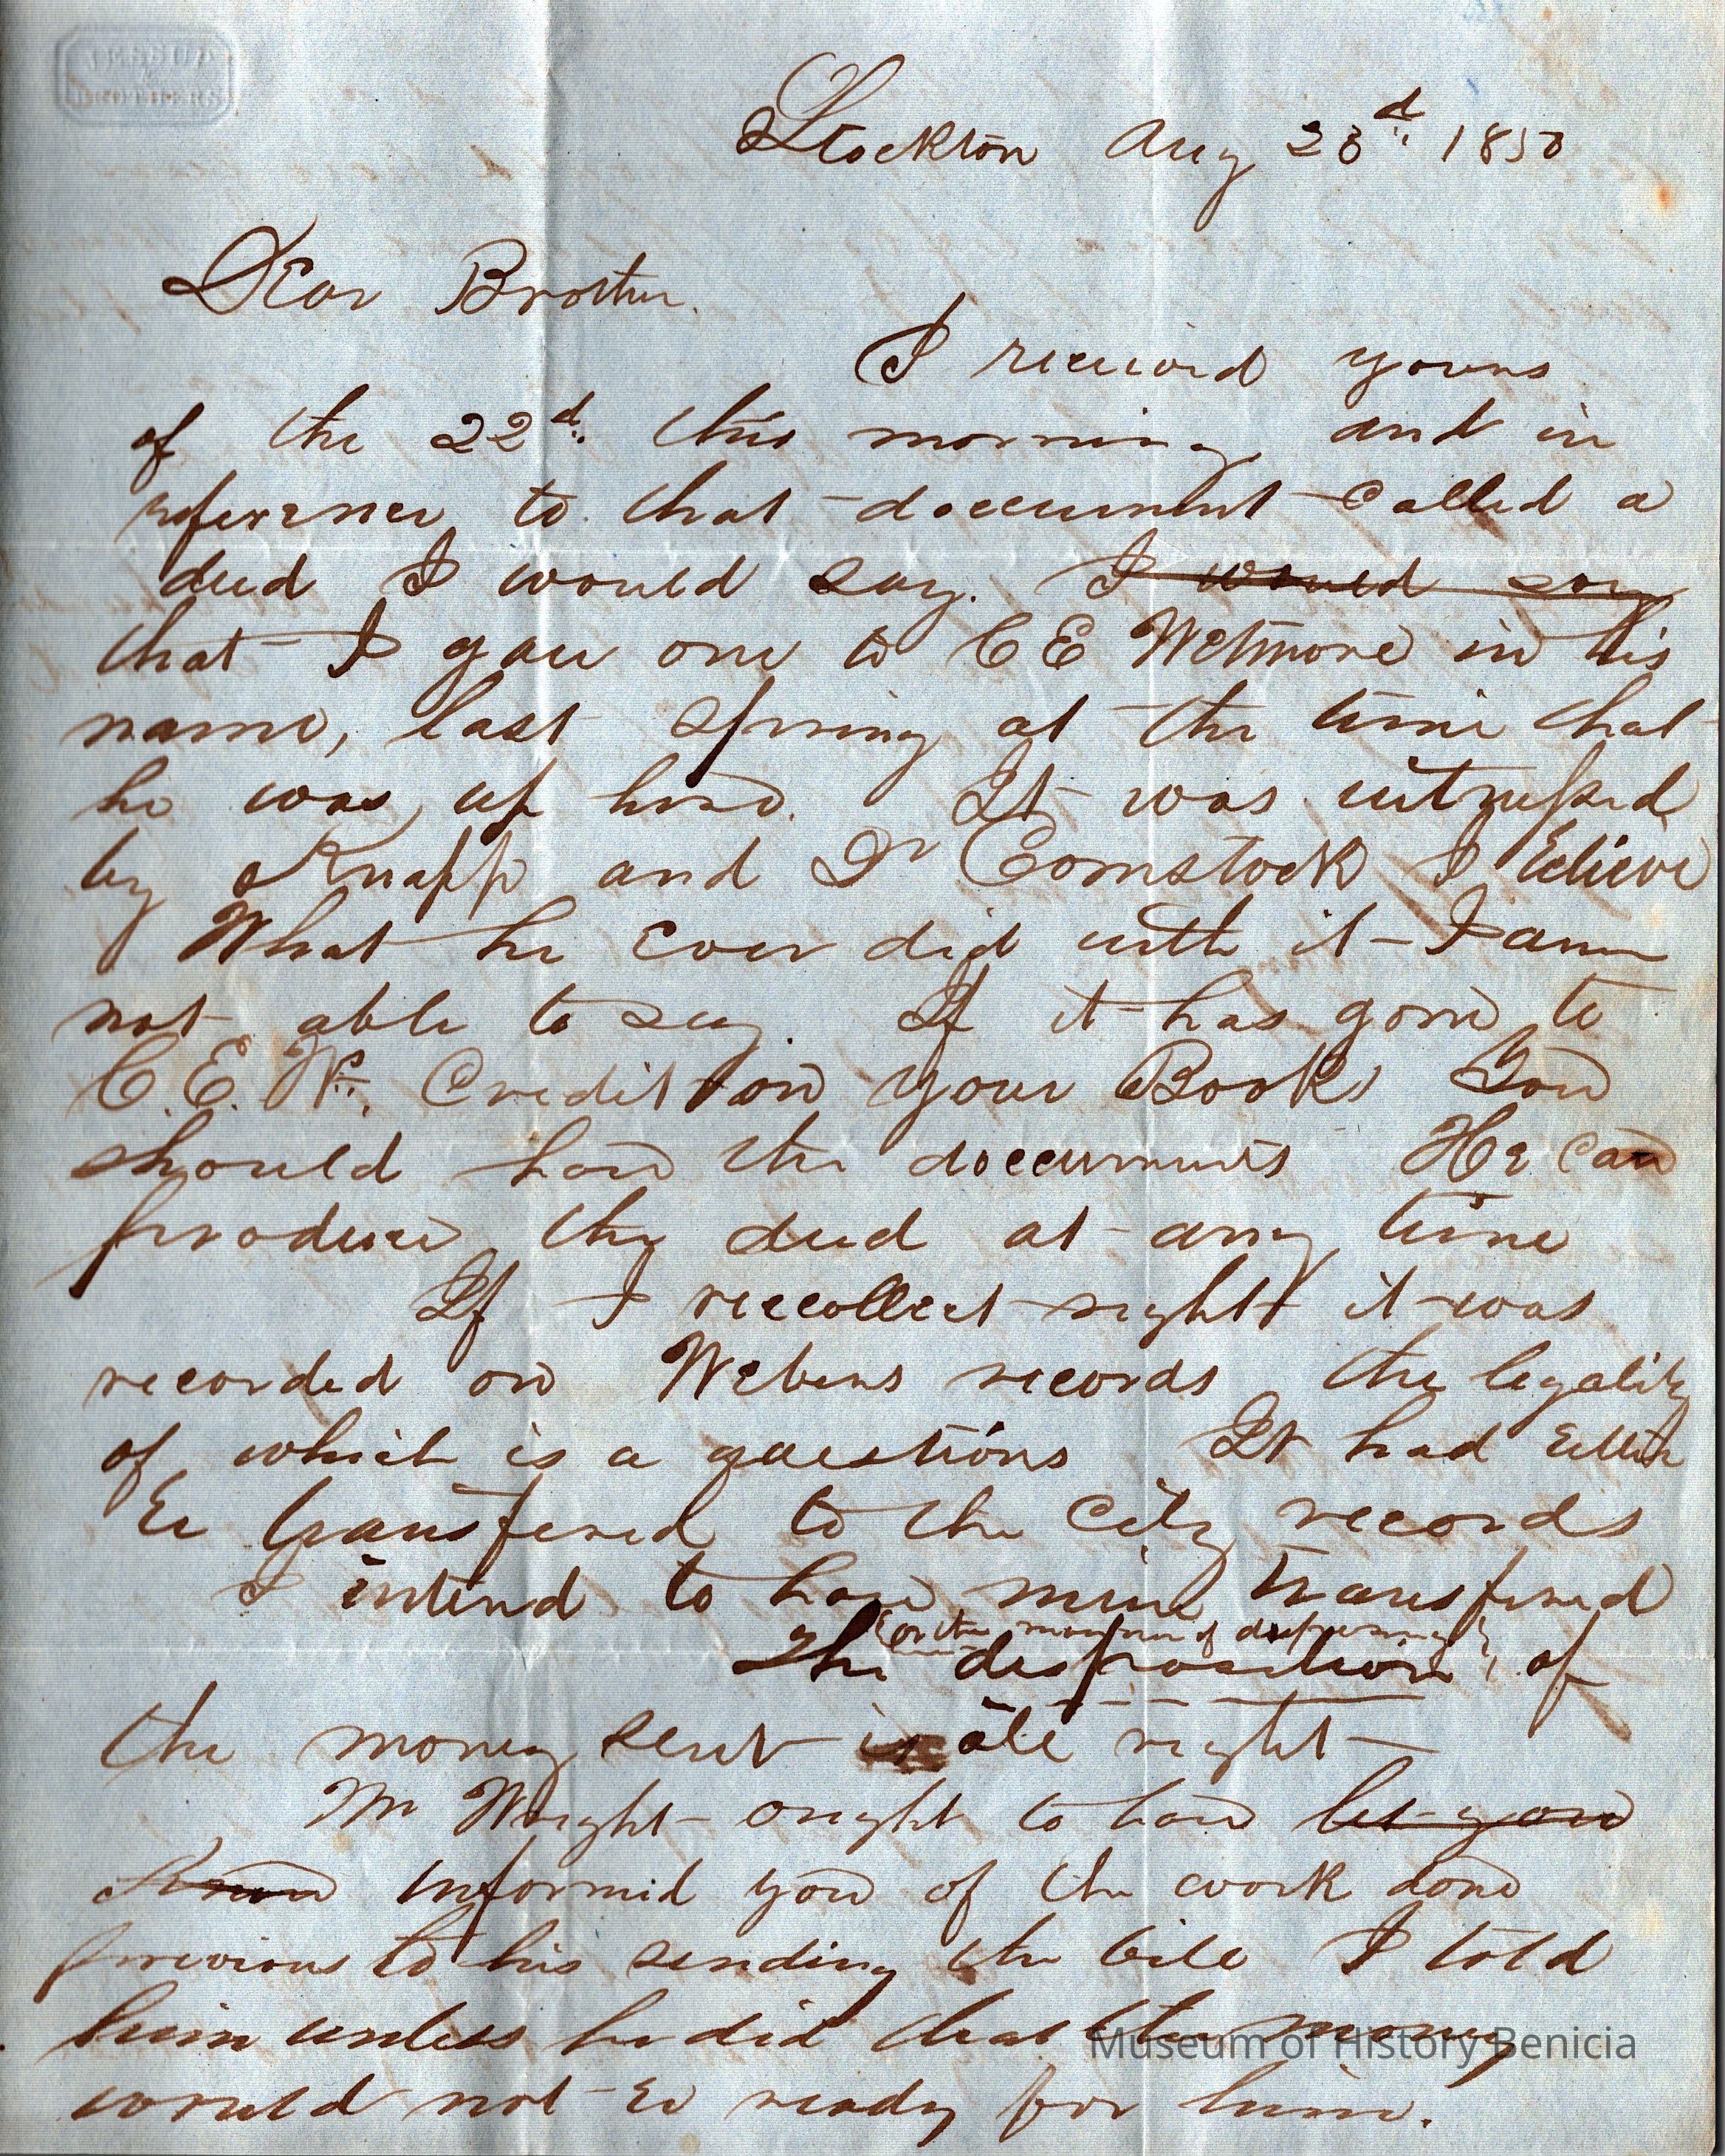 JESSUP
&
BROTHERS
Stockton Aug 23d. 1850
Dear Brother.
I received yours
of the 22d. this morning and in
reference to that document called a
deed I would say. I would say
that I gave one to C E Wetmore in his
name, last spring at the time that
he was up here. It was witnessed
by Knapp and Dr Comstock I believe
What he ever did with it I am
not able to say. If it has gone to
C. E. Ws. Credit on your Books You
should have the documents He can
produce the deed at any time
If I reccollect right it was
recorded on Webers records the legality
of which is a question It had better
be transfered to the City records
I intend to have mine transfered
(or the manner of dispersing)
The disposition, of
the money sent is all right
Mr Wright ought to have let you
know informed you of the work done
previous to his sending the bill I told
him unless he did that the money
would not be ready for him.
Museum of History Benicia